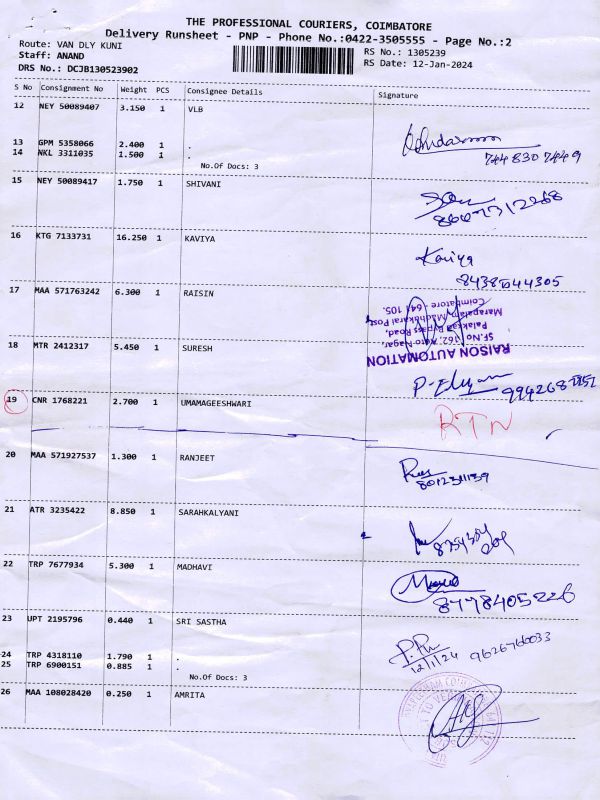 THE PROFESSIONAL COURIERS, COIMBATORE
Delivery Runsheet - PNP - Phone No.:0422-3505555 - Page No.:2
Route: VAN DLY KUNI
Staff: ANAND
DRS No.: DCJB130523902
RS No.: 1305239
RS Date: 12-Jan-2024
S No Consignment No Weight PCS Consignee Details Signature
12 NEY 50089407 3.150 1 VLB
13 GPM 5358066 2.400 1 .
14 NKL 3311035 1.500 1 .
744 830 7449
No.Of Docs: 3
15 NEY 50089417 1.750 1 SHIVANI
16 KTG 7133731 16.250 1 KAVIYA
Kaviya
8438044305
17 MAA 571763242 6.300 1 RAISIN
RAISON AUTOMATION
SF.No 162, Auto Nagar,
Palakkad Bypass Road,
Marapalam, Madhukarai Post
Coimbatore - 641 105.
18 MTR 2412317 5.450 1 SURESH
19 CNR 1768221 2.700 1 UMAMAGEESHWARI
RTN
20 MAA 571927537 1.300 1 RANJEET
21 ATR 3235422 8.850 1 SARAHKALYANI
22 TRP 7677934 5.300 1 MADHAVI
8778405226
23 UPT 2195796 0.440 1 SRI SASTHA
24 TRP 4318110 1.790 1 .
12/1/24 9626766033
25 TRP 6900151 0.885 1 .
No.Of Docs: 3
26 MAA 108028420 0.250 1 AMRITA